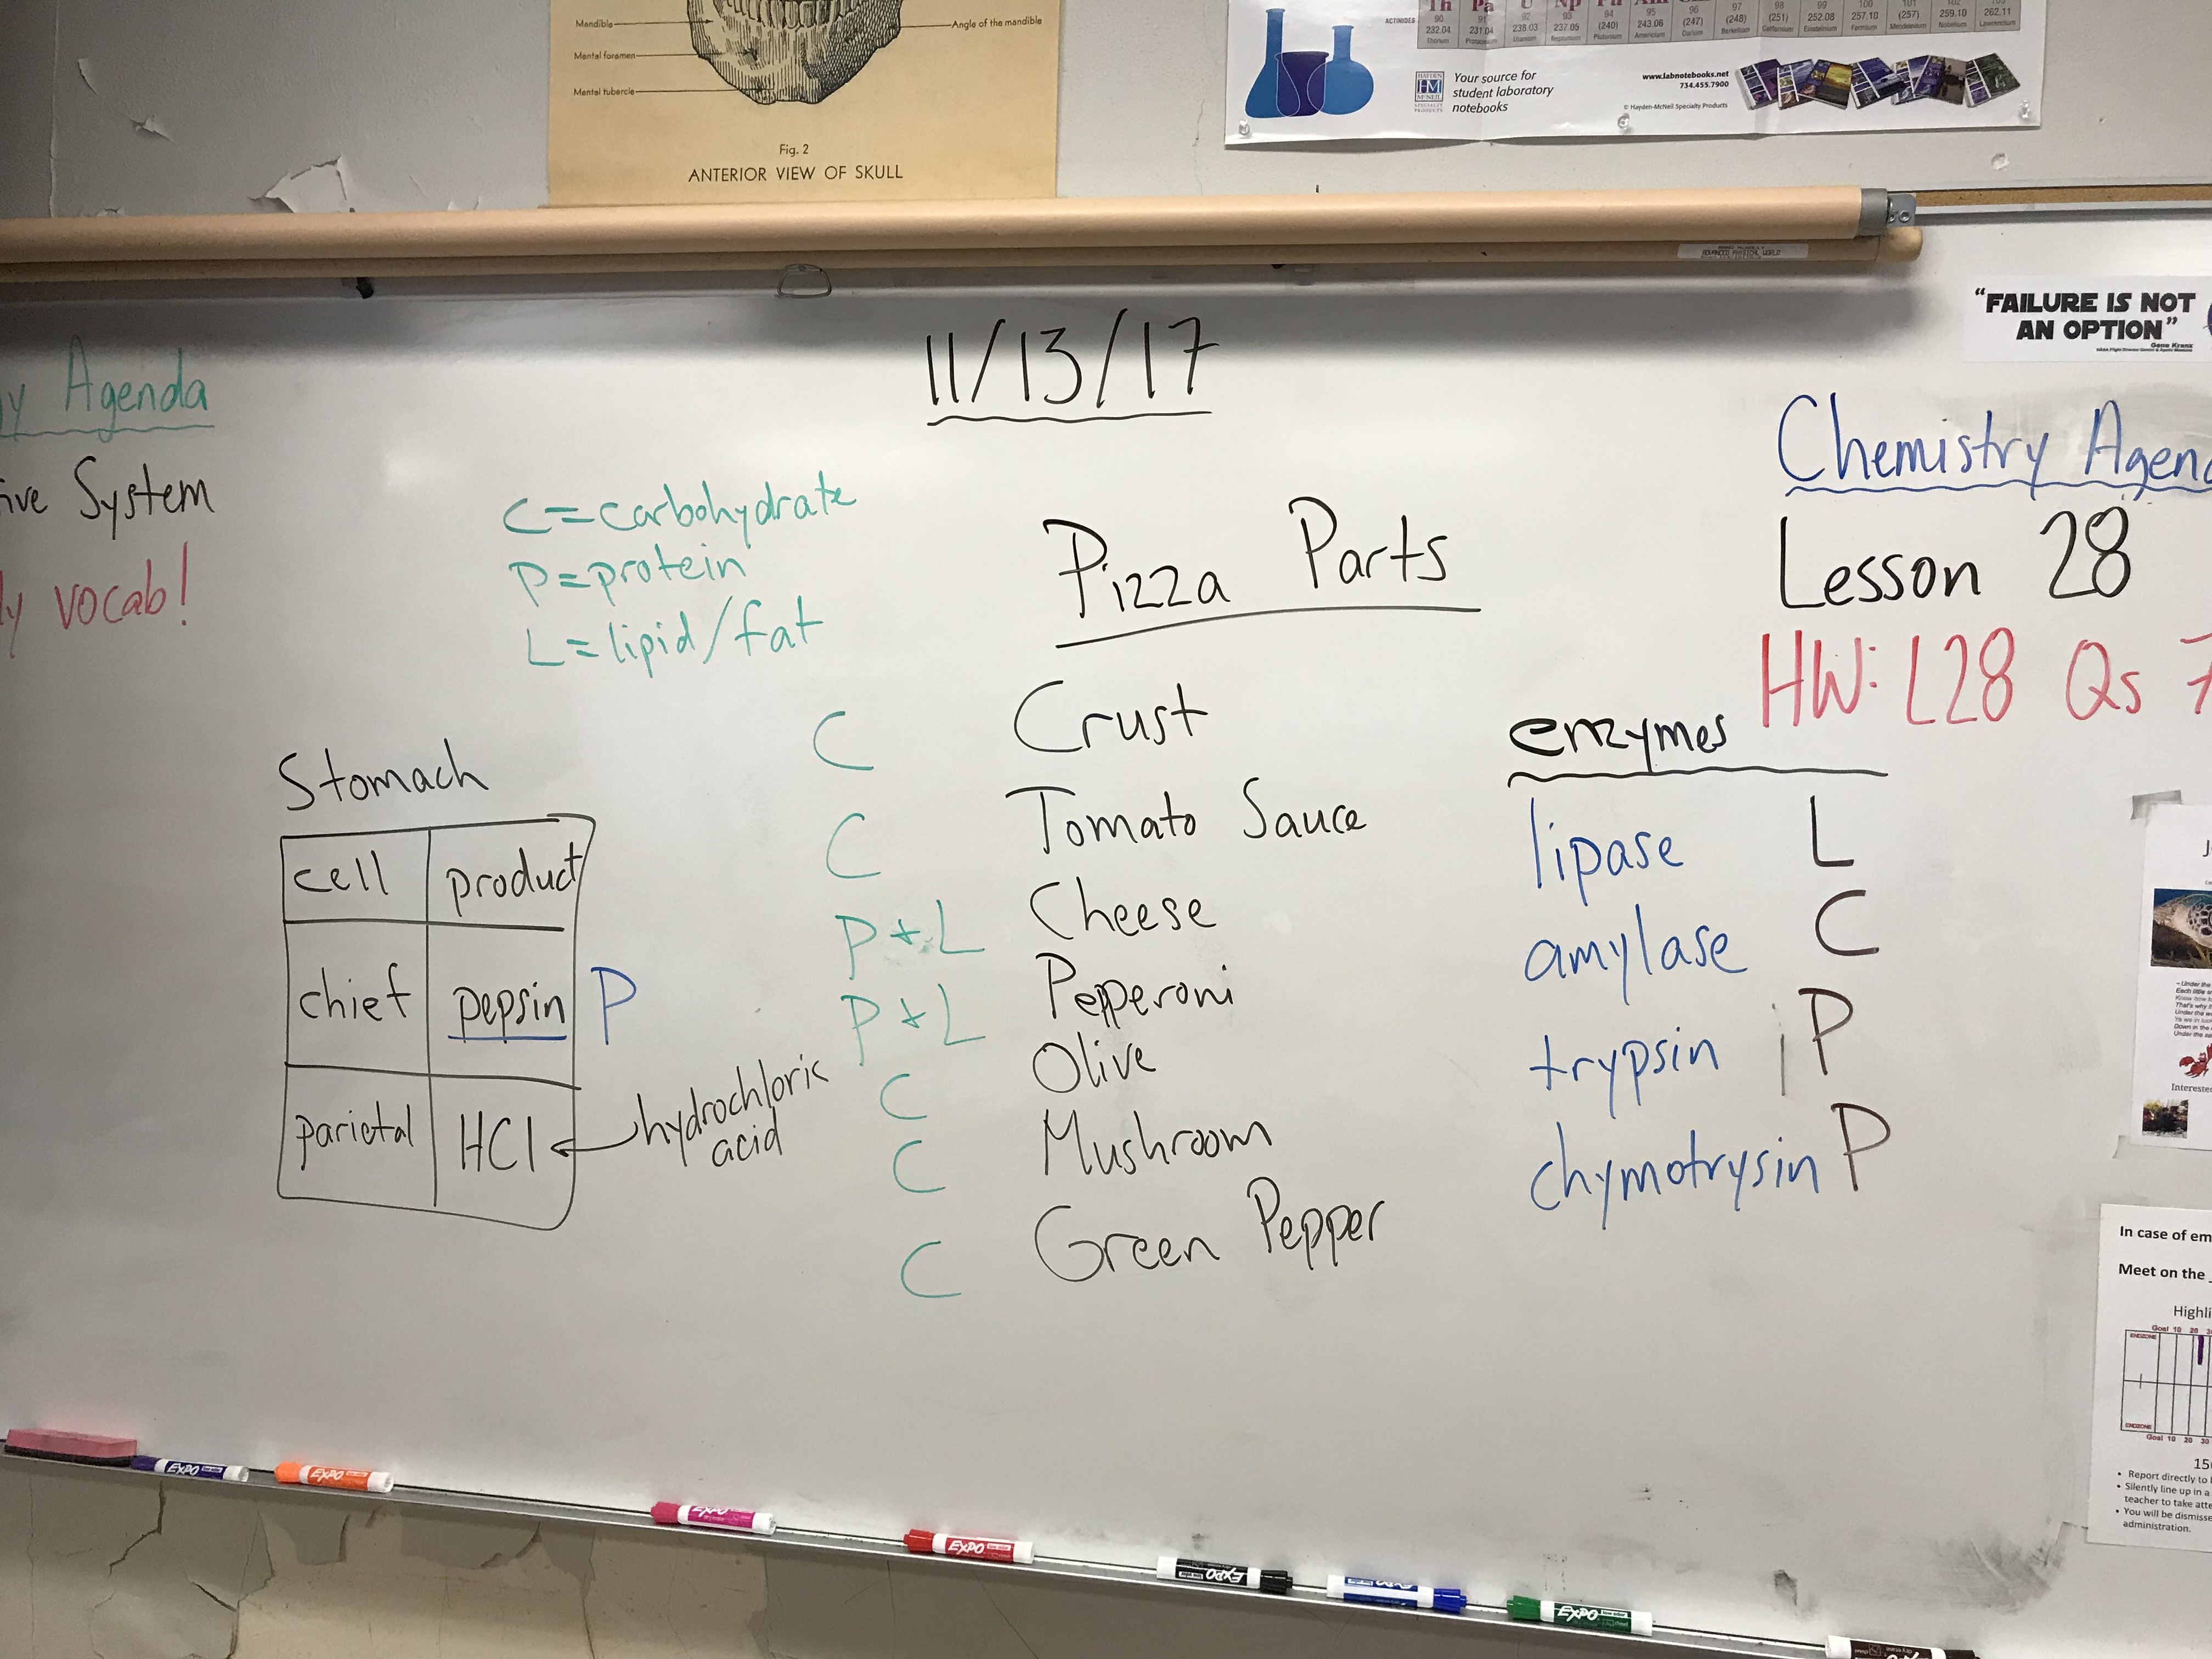 Mandible
Mental foramen
Mental tubercle
Angle of the mandible
Fig. 2
ANTERIOR VIEW OF SKULL
ACTINIDES
Th Pa U Np Pu
90 91 92 93 94 95 96 97 98 99 100 101
232.04 231.04 238.03 237.05 (240) 243.06 (247) (248) (251) 252.08 257.10 (257) 259.10 262.11
Thorium Protactinium Uranium Neptunium Plutonium Americium Curium Berkelium Californium Einsteinium Fermium Mendelevium Nobelium Lawrencium
HAYDEN
MCNEIL
SPECIALTY
PRODUCTS
Your source for
student laboratory
notebooks
www.labnotebooks.net
734.455.7900
© Hayden-McNeil Specialty Products
ADVANCED PHYSICAL WORLD
"FAILURE IS NOT
AN OPTION"
Gene Kranz
11/13/17
y Agenda
ive System
ly vocab!
C=carbohydrate
P=protein
L=lipid/fat
Stomach
cell product
chief pepsin P
parietal HCl
hydrochloric
acid
Pizza Parts
C Crust
C Tomato Sauce
P+L Cheese
P+L Pepperoni
C Olive
C Mushroom
C Green Pepper
Chemistry Agend
Lesson 28
HW: L28 Qs 7
enzymes
lipase L
amylase C
trypsin P
chymotrysin P
J
Under the
Each little
Under the
Down in the
Under the
Interested
In case of em
Meet on the
Highli
Goal 10 20 30
ENDZONE
ENDZONE
Goal 10 20 30
15
• Report directly to
• Silently line up in a
teacher to take atte
• You will be dismisse
administration.
EXPO
EXPO
EXPO
EXPO
EXPO
EXPO
EXPO
EXPO